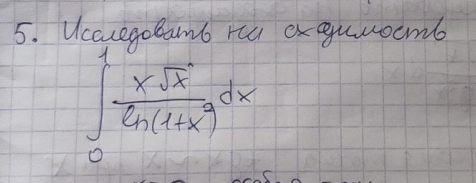 5. Исследовать на сходимость
1
∫ x√x / ln(1+x⁹) dx
0